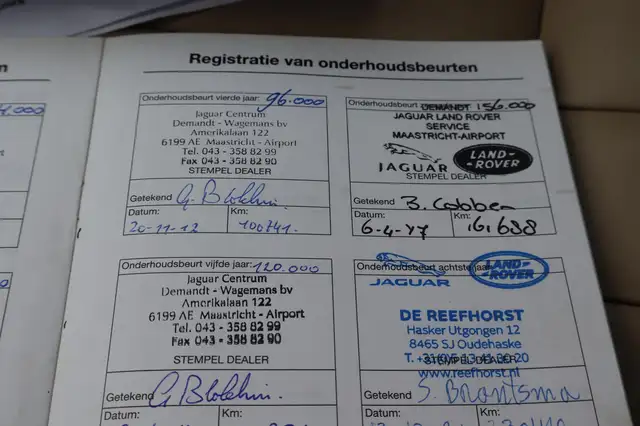 Registratie van onderhoudsbeurten
Onderhoudsbeurt vierde jaar: 96.000
Jaguar Centrum
Demandt - Wagemans bv
Amerikalaan 122
6199 AE Maastricht - Airport
Tel. 043 - 358 82 99
Fax 043 - 358 82 90
STEMPEL DEALER
Getekend
Datum: Km:
20-11-12 100741.
Onderhoudsbeurt 156.000
DEMANDT
JAGUAR LAND ROVER
SERVICE
MAASTRICHT-AIRPORT
JAGUAR LAND-ROVER
STEMPEL DEALER
Getekend B. Cobben
Datum: Km:
6-4-17
Onderhoudsbeurt vijfde jaar: 120.000
Jaguar Centrum
Demandt - Wagemans bv
Amerikalaan 122
6199 AE Maastricht - Airport
Tel. 043 - 358 82 99
Fax 043 - 358 82 90
STEMPEL DEALER
Getekend
Datum: Km:
Onderhoudsbeurt achtste jaar:
JAGUAR LAND-ROVER
DE REEFHORST
Hasker Utgongen 12
8465 SJ Oudehaske
STEMPEL DEALER
www.reefhorst.nl
Getekend S. Brantsma
Datum: Km: